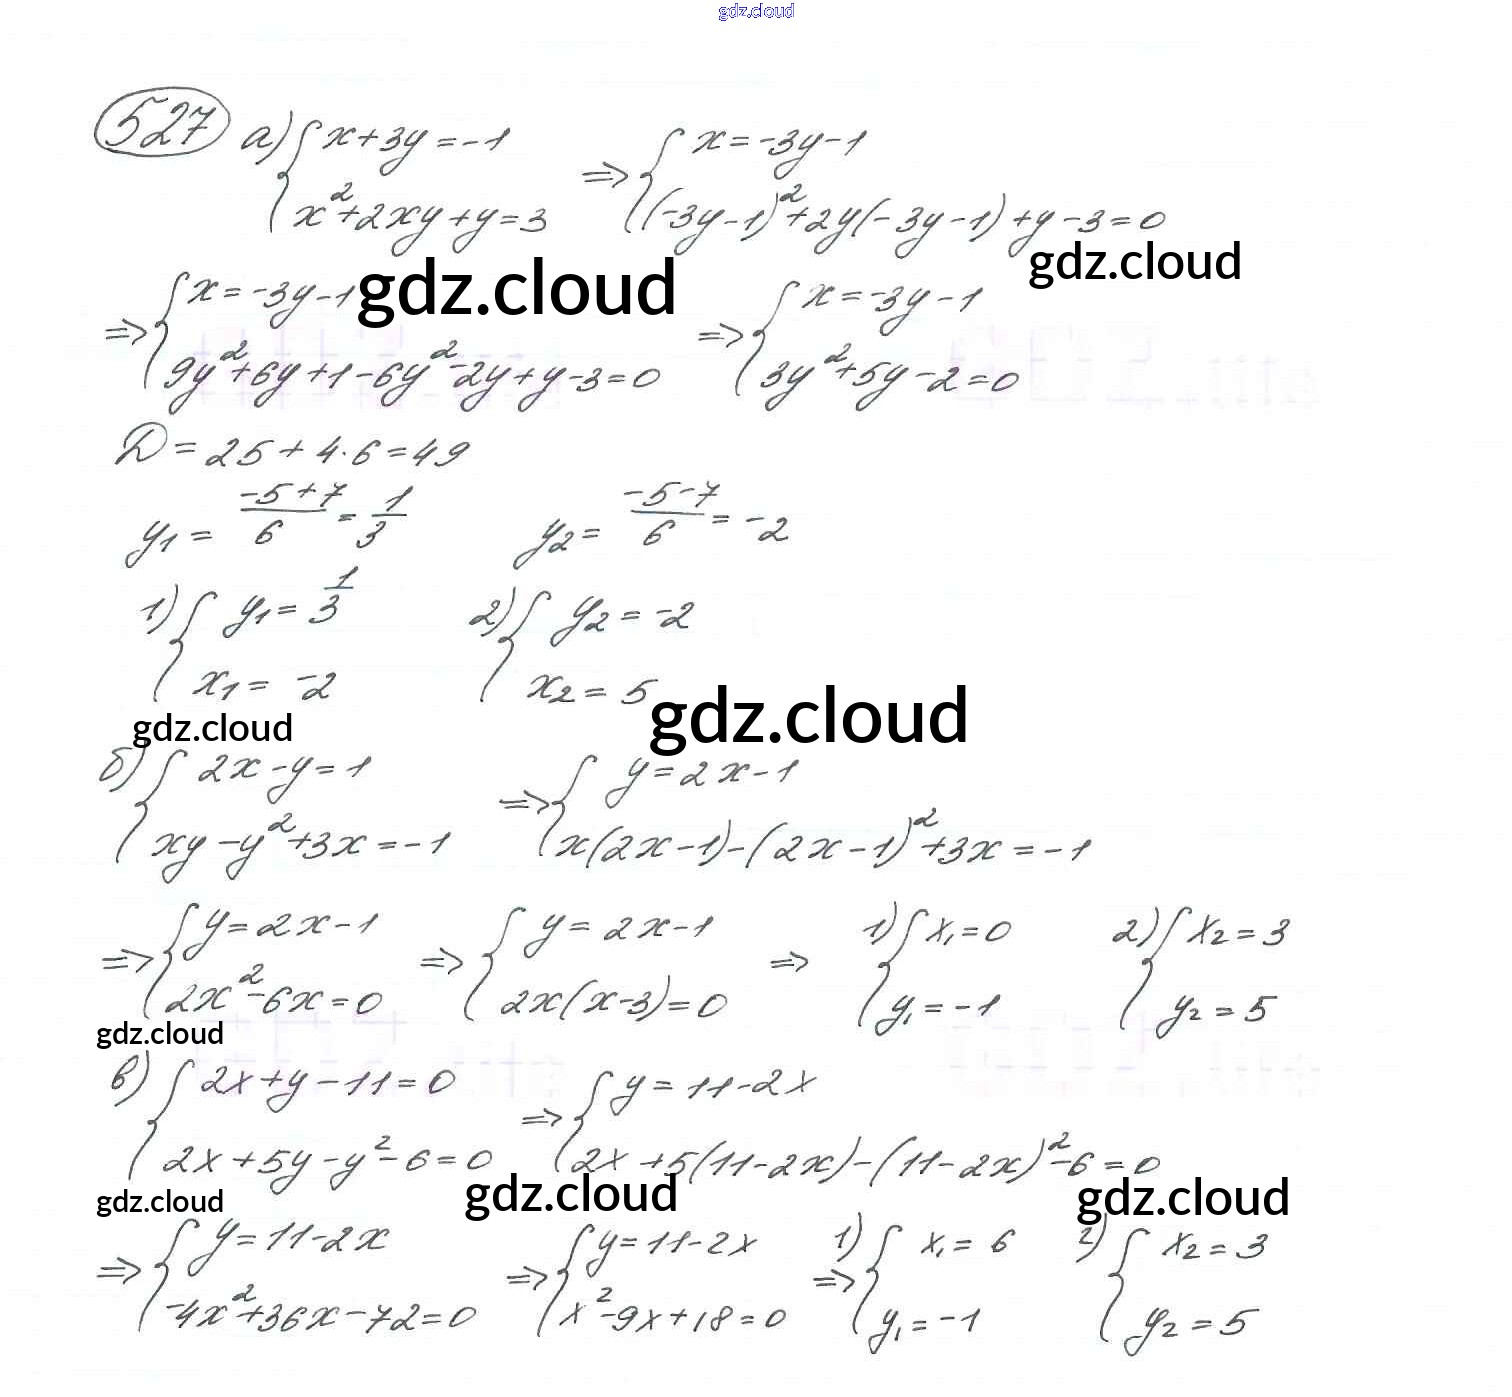 gdz.cloud
527 а) { x+3y=-1 ; x²+2xy+y=3 ⇒ { x=-3y-1 ; (-3y-1)²+2y(-3y-1)+y-3=0
gdz.cloud
⇒ { x=-3y-1 ; 9y²+6y+1-6y²-2y+y-3=0 ⇒ { x=-3y-1 ; 3y²+5y-2=0
gdz.cloud
D=25+4·6=49
y₁= (-5+7)/6 = 1/3 y₂= (-5-7)/6 = -2
1) { y₁=1/3 ; x₁=-2 2) { y₂=-2 ; x₂=5
gdz.cloud
gdz.cloud
б) { 2x-y=1 ; xy-y²+3x=-1 ⇒ { y=2x-1 ; x(2x-1)-(2x-1)²+3x=-1
⇒ { y=2x-1 ; 2x²-6x=0 ⇒ { y=2x-1 ; 2x(x-3)=0 ⇒ 1) { x₁=0 ; y₁=-1 2) { x₂=3 ; y₂=5
gdz.cloud
в) { 2x+y-11=0 ; 2x+5y-y²-6=0 ⇒ { y=11-2x ; 2x+5(11-2x)-(11-2x)²-6=0
gdz.cloud gdz.cloud gdz.cloud
⇒ { y=11-2x ; -4x²+36x-72=0 ⇒ { y=11-2x ; x²-9x+18=0 ⇒ 1) { x₁=6 ; y₁=-1 2) { x₂=3 ; y₂=5